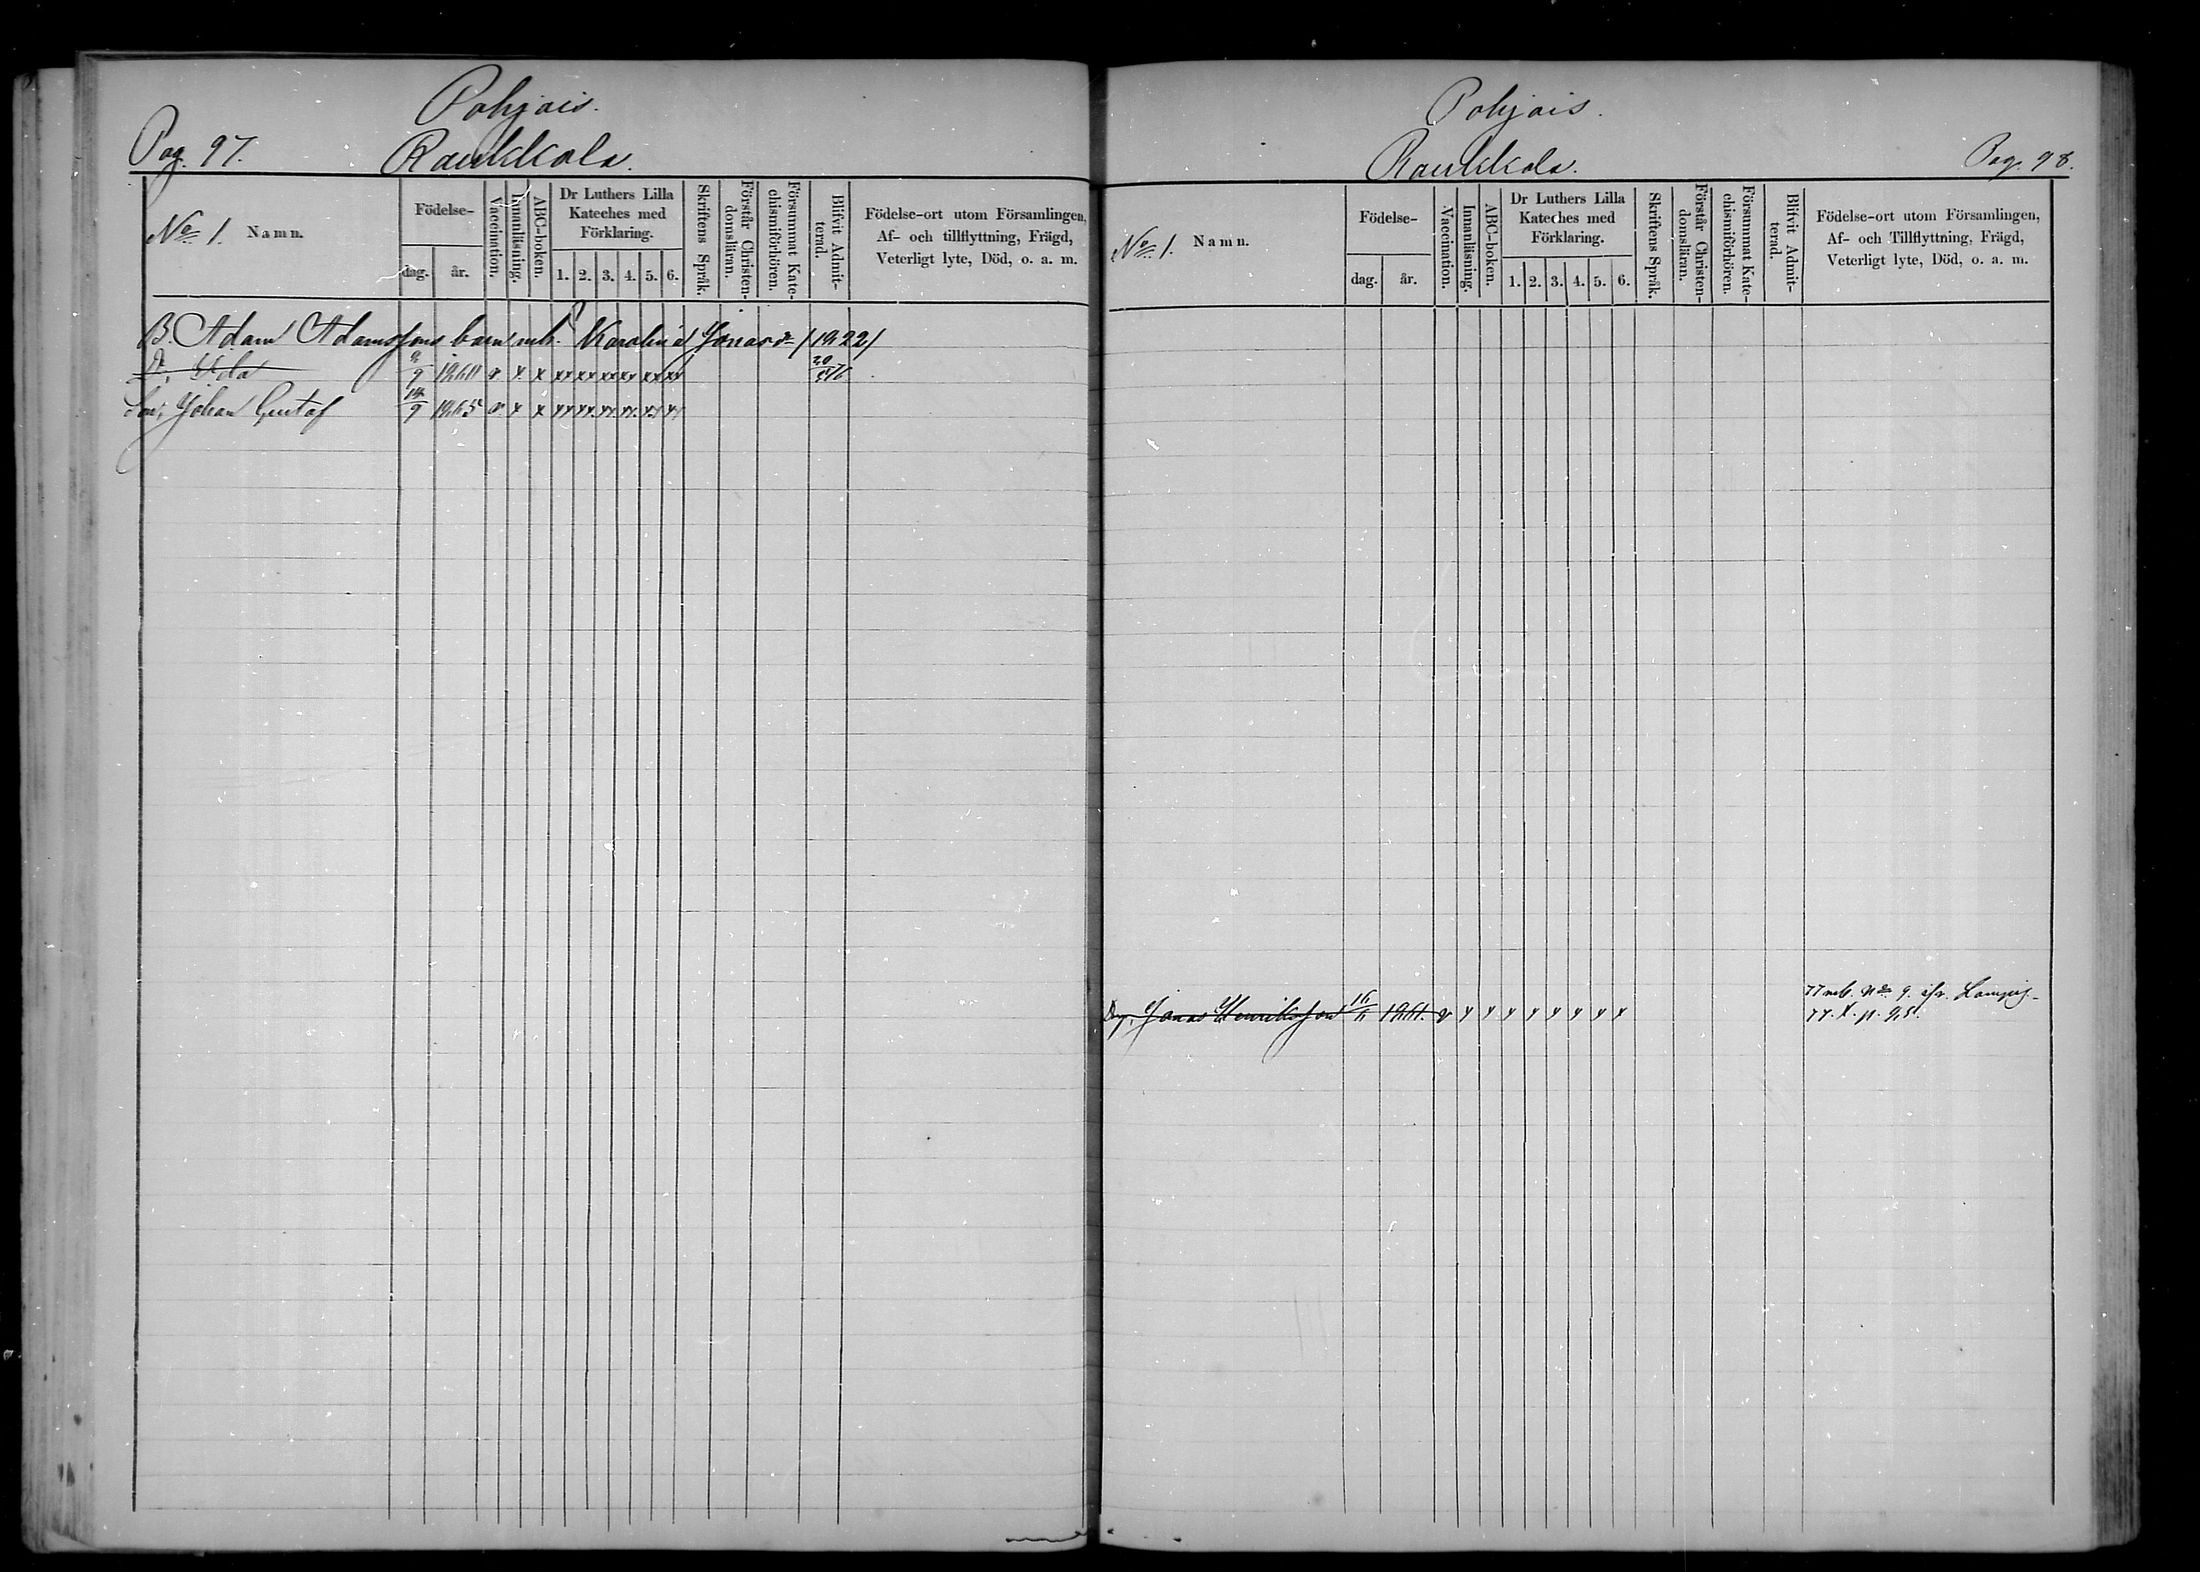 Pohjois.
Pag. 97. Raukkola.
No 1. Namn.
Födelse-
dag. år.
Vaccination.
Innanläsning.
ABC-boken.
Dr Luthers Lilla
Kateches med
Förklaring.
1. 2. 3. 4. 5. 6.
Skriftens Språk.
Förstår Christen-
domsläran.
Försummat Kate-
chismiförhören.
Blifvit Admit-
terad.
Födelse-ort utom Församlingen,
Af- och tillflyttning, Frägd,
Veterligt lyte, Död, o. a. m.
B. Adam Adamssons barn m. Karolina Jonasdr
Dr, Ida 9 1860 v x x xx xx xx xx xx xx
Son, Johan Gustaf 9 1865 v x x xx xx xx xx xx xx
Pohjois.
Raukkola. Pag. 98.
No 1. Namn.
Födelse-
dag. år.
Vaccination.
Innanläsning.
ABC-boken.
Dr Luthers Lilla
Kateches med
Förklaring.
1. 2. 3. 4. 5. 6.
Skriftens Språk.
Förstår Christen-
domsläran.
Försummat Kate-
chismiförhören.
Blifvit Admit-
terad.
Födelse-ort utom Församlingen,
Af- och Tillflyttning, Frägd,
Veterligt lyte, Död, o. a. m.
77 No 9.
Drg, Jonas Henriksson 1861. v x x x x x x x x 77. p. 25.